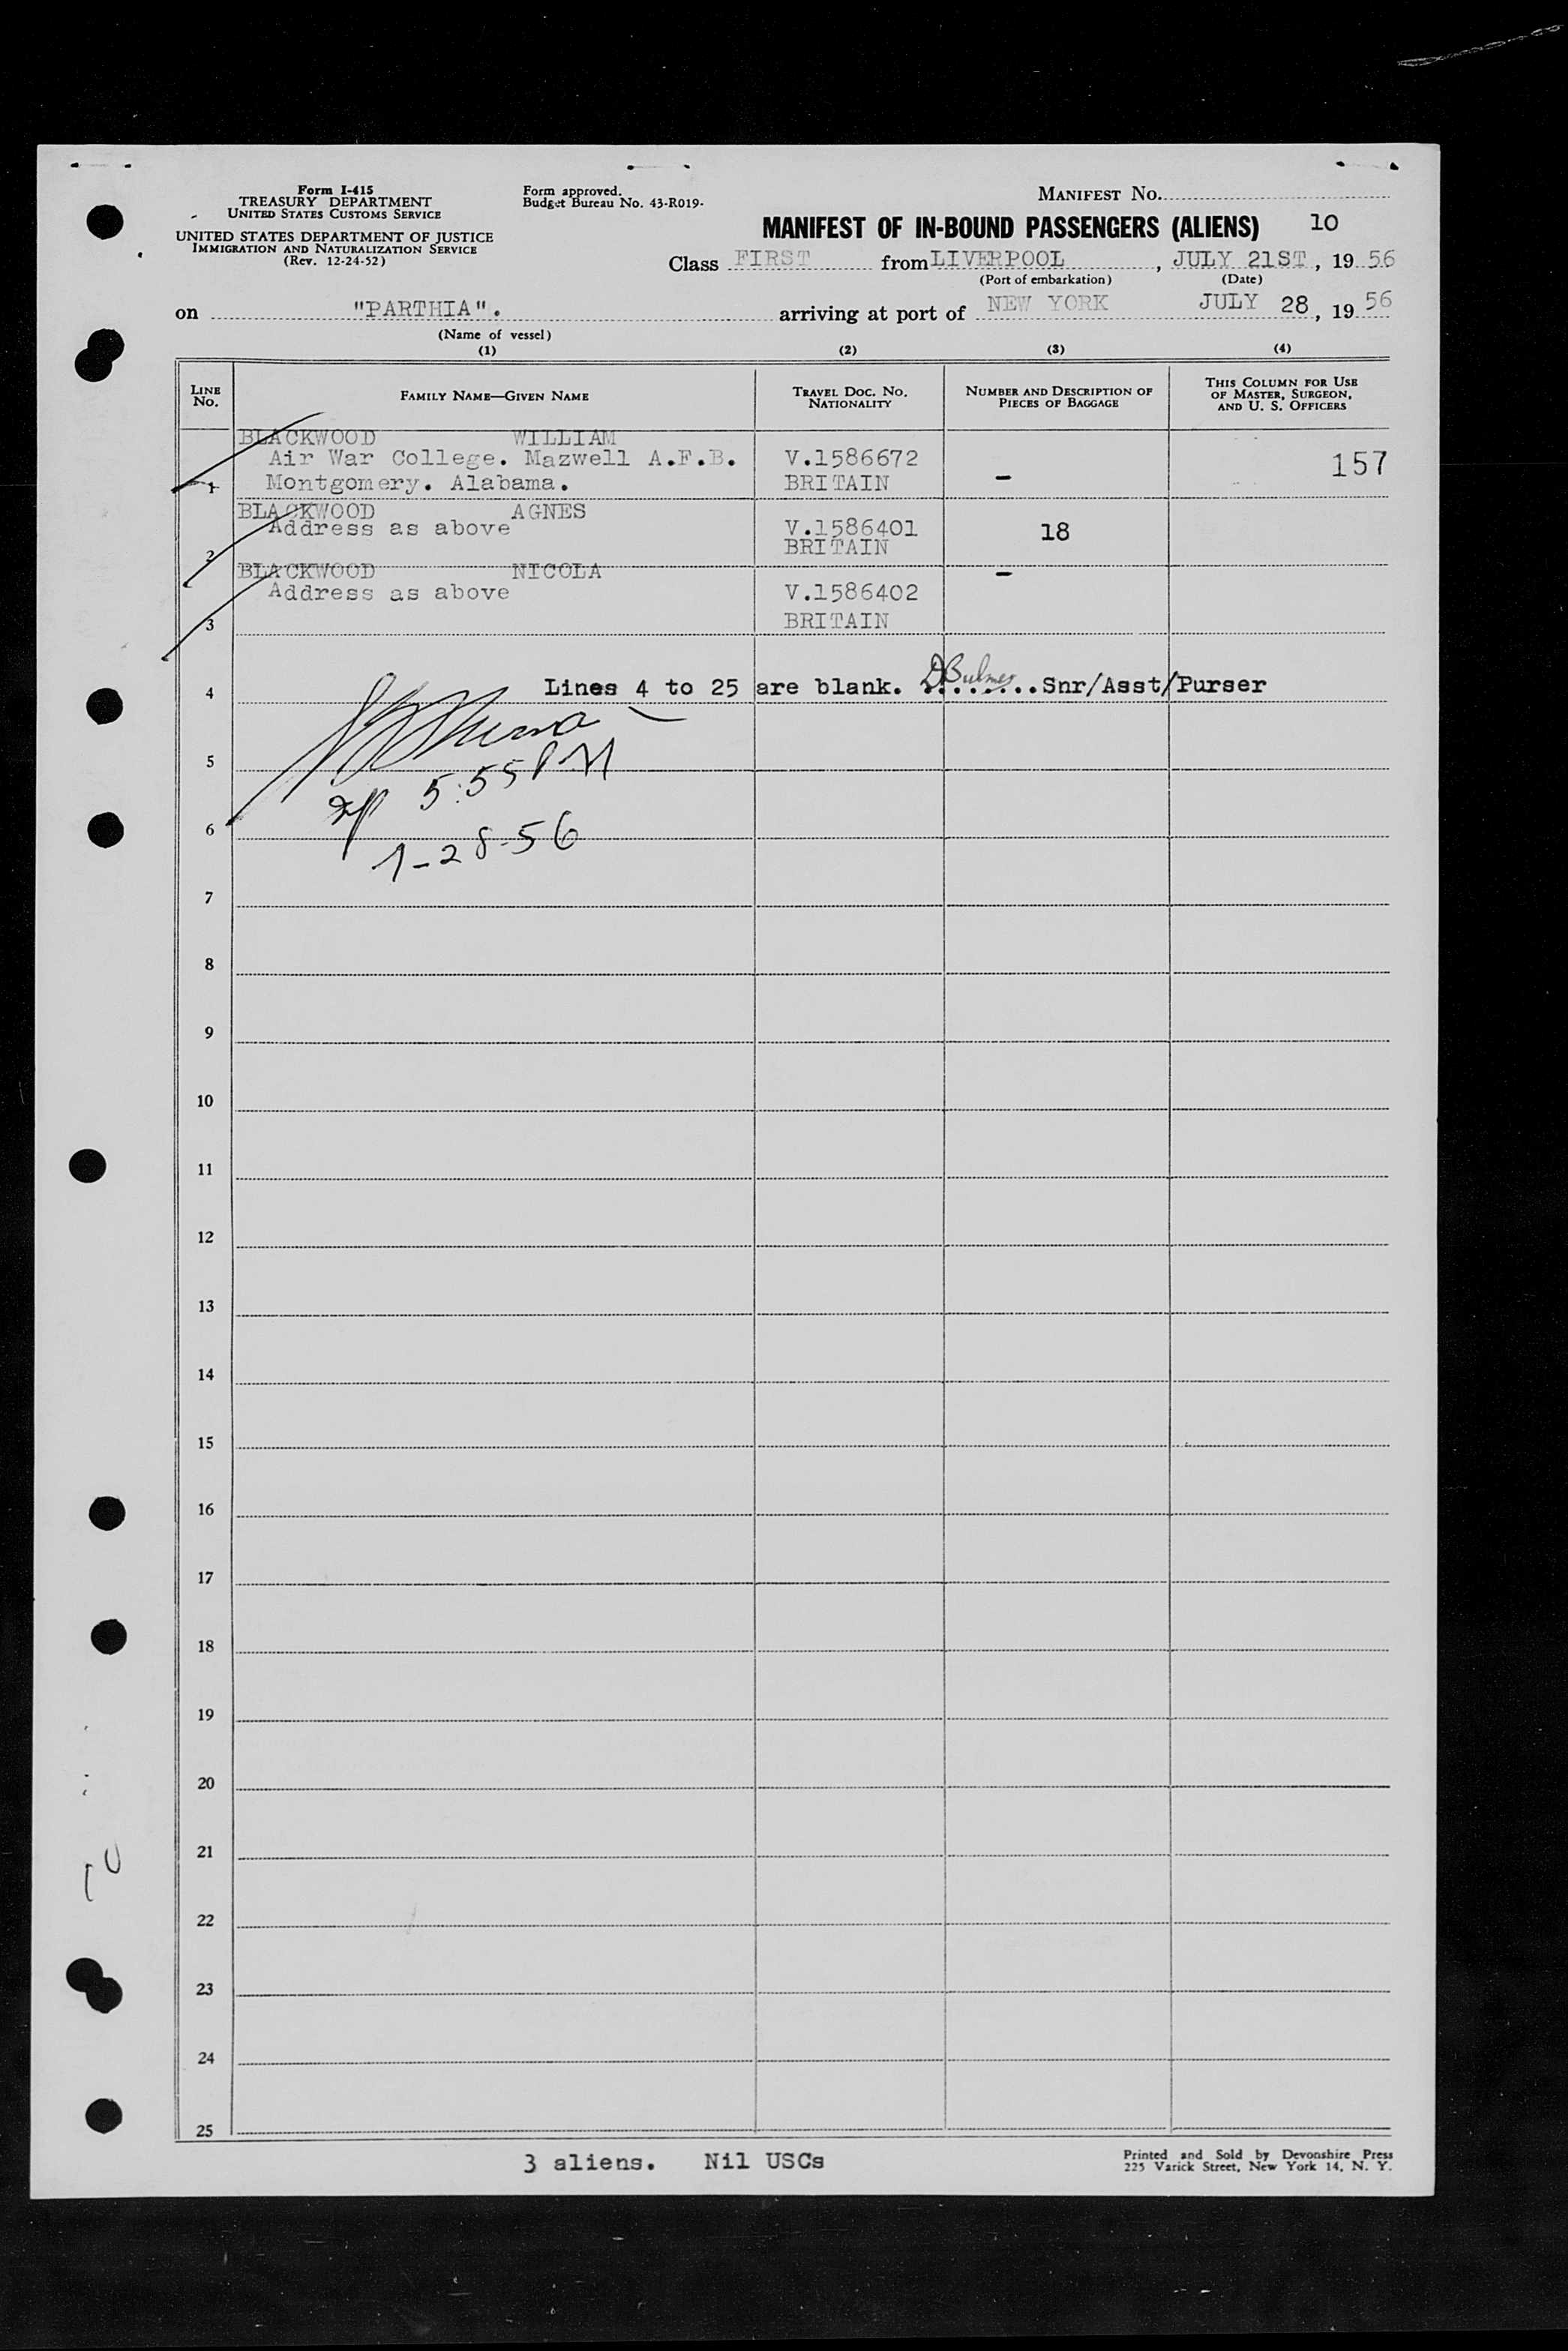 Form I-415
TREASURY DEPARTMENT
UNITED STATES CUSTOMS SERVICE
UNITED STATES DEPARTMENT OF JUSTICE
IMMIGRATION AND NATURALIZATION SERVICE
(Rev. 12-24-52)
Form approved.
Budget Bureau No. 43-R019-
MANIFEST NO.
MANIFEST OF IN-BOUND PASSENGERS (ALIENS) 10
Class FIRST from LIVERPOOL, JULY 21ST, 19 56
(Port of embarkation) (Date)
on "PARTHIA". arriving at port of NEW YORK JULY 28, 19 56
(Name of vessel)
(1) (2) (3) (4)
LINE NO. FAMILY NAME—GIVEN NAME TRAVEL DOC. NO. NATIONALITY NUMBER AND DESCRIPTION OF PIECES OF BAGGAGE THIS COLUMN FOR USE OF MASTER, SURGEON, AND U. S. OFFICERS
BLACKWOOD WILLIAM
Air War College. Mazwell A.F.B. V.1586672 157
1 Montgomery. Alabama. BRITAIN –
BLACKWOOD AGNES
Address as above V.1586401 18
2 BRITAIN
BLACKWOOD NICOLA –
Address as above V.1586402
3 BRITAIN
4 Lines 4 to 25 are blank. DBulmer ........Snr/Asst/Purser
5
5:55 PM
6
7-28-56
7
8
9
10
11
12
13
14
15
16
17
18
19
20
21
22
23
24
25
3 aliens. Nil USCs
Printed and Sold by Devonshire Press
225 Varick Street, New York 14, N. Y.